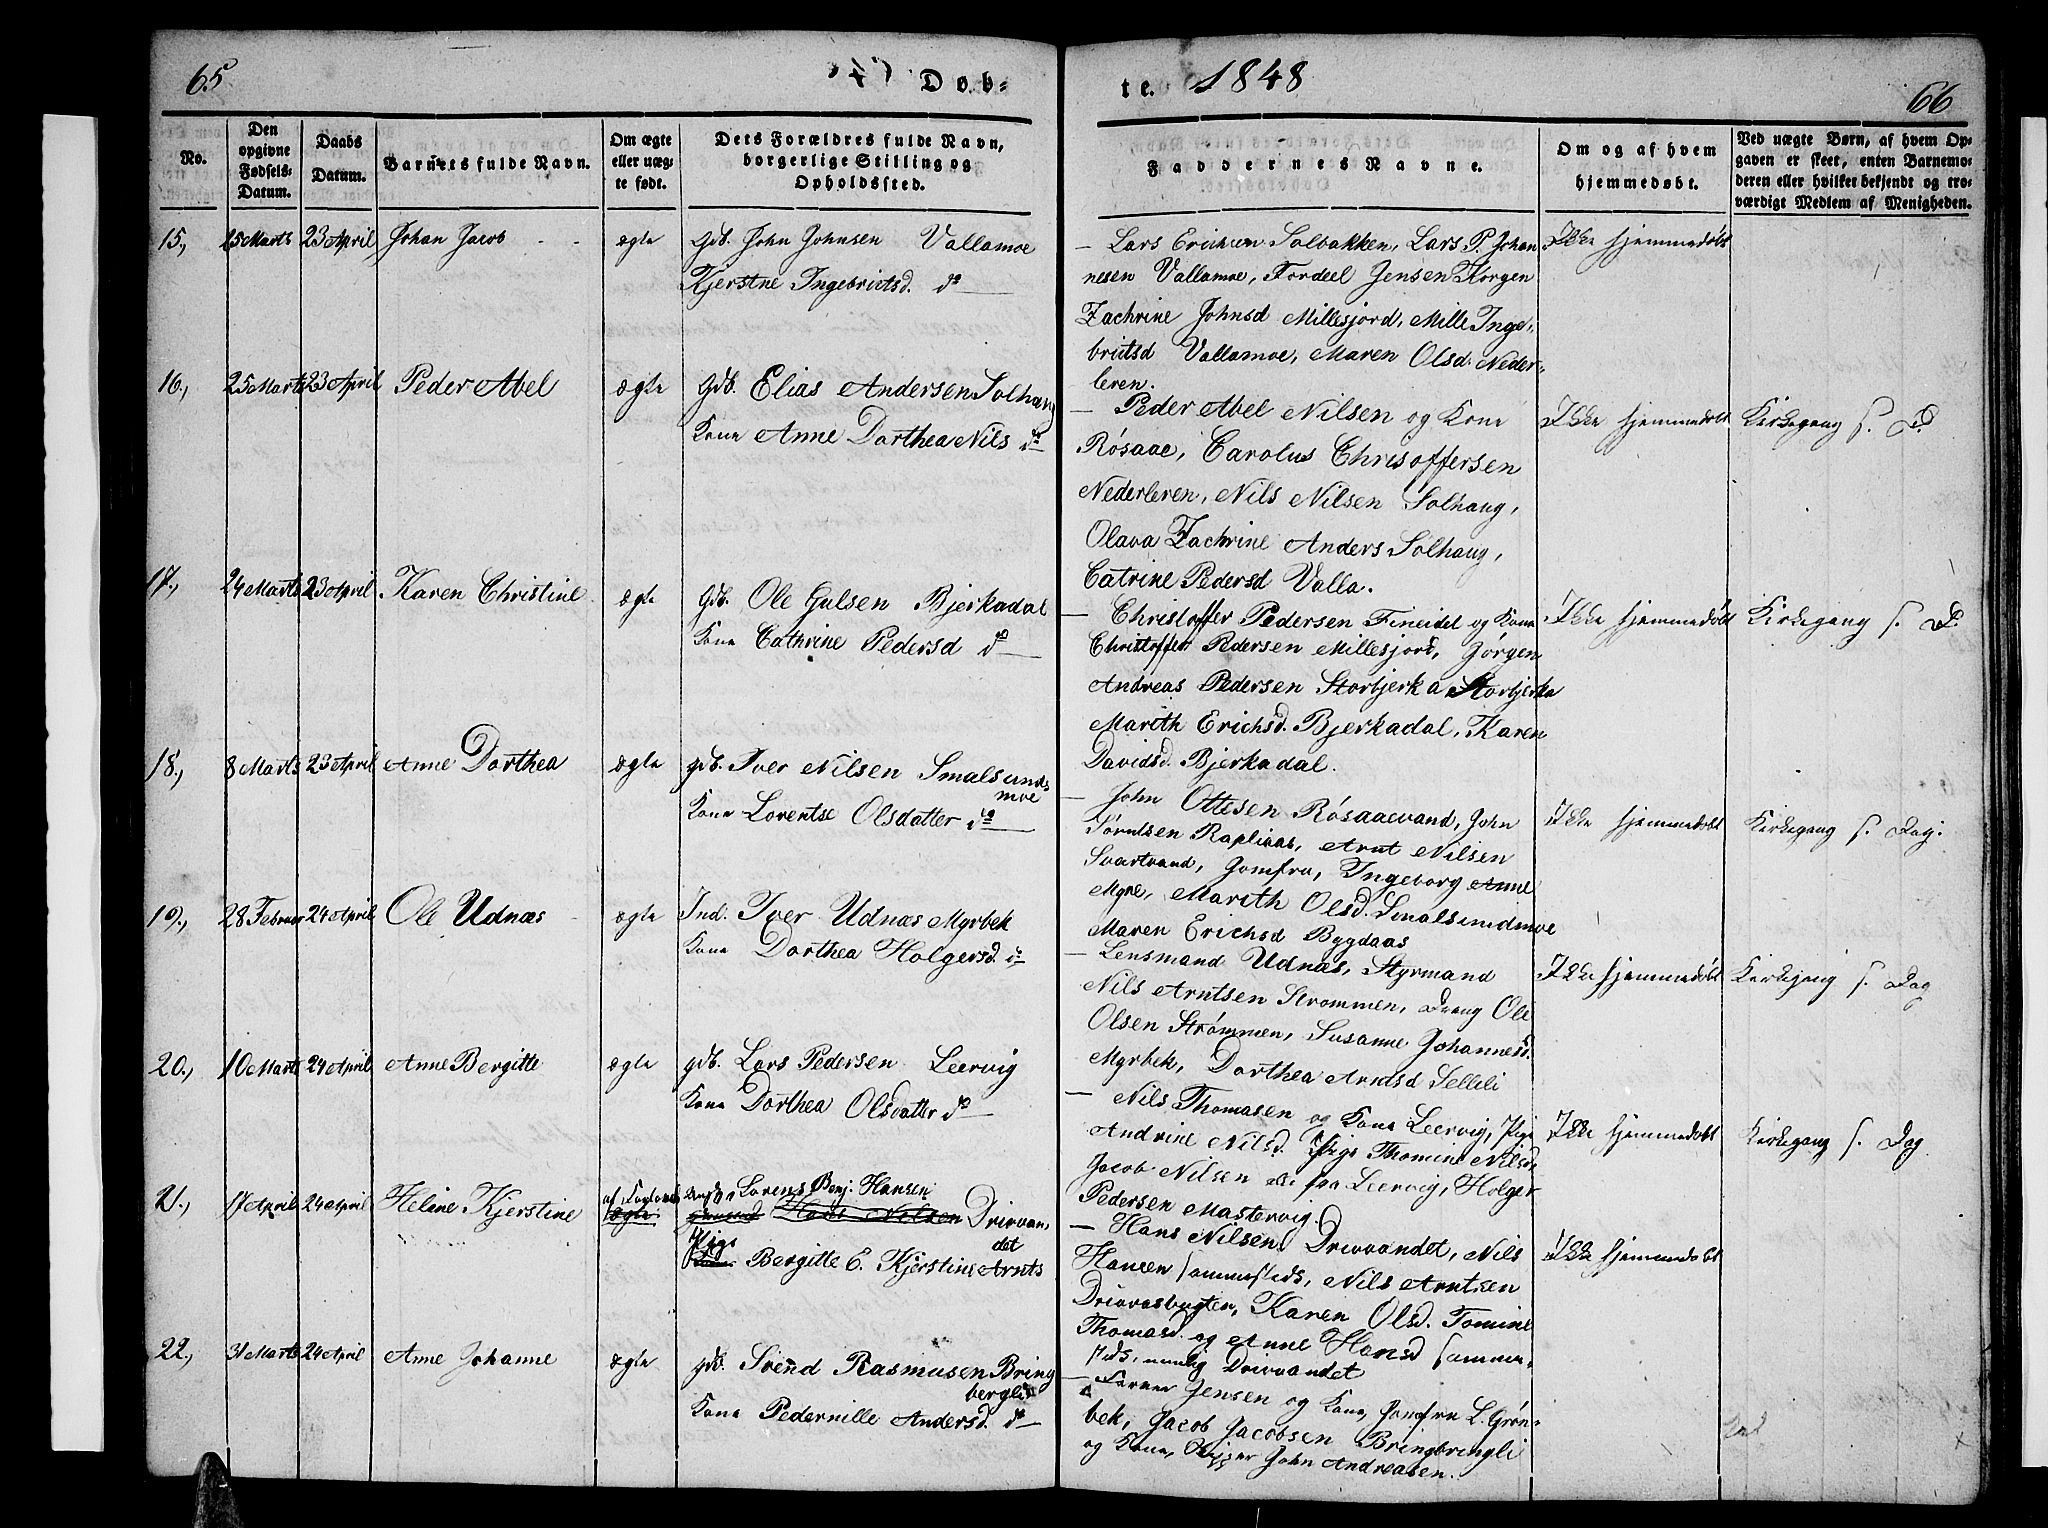 65.
Døb-
te.
1848
66
No.
Den
opgivne
Fødsels-
Datum.
Daabs
Datum.
Barnets fulde Navn.
Om ægte
eller uæg-
te født.
Dets Forældres fulde Navn,
borgerlige Stilling og
Opholdssted.
Faddernes Navne.
Om og af hvem
hjemmedøbt.
Ved uægte Børn, af hvem Op-
gaven er skeet, enten Barnemo-
deren eller hvilket bekjendt og tro-
værdigt Medlem af Menigheden.
15., 25 Marts 23 April Johan Jacob - - ægte Gdb. John Johnsen Vallamoe
Kjerstne Ingebrietsd. do
— Lars Erichsen Solbakken, Lars P. Johan
nesen Vallamoe, Fordeel Jensen Korgen
Zachrine Johnsd Millesjord, Mille Inge-
brietsd Vallamoe, Maren Olsd. Neder-
leren.
Ikke hjemmedøbt
16., 25 Marts 23 April Peder Abel ægte Gdb. Elias Andersen Solhaug
Kone Anne Dorthea Nils do
— Peder Abel Nilsen og Kone
Røsaae, Carolus Chrisoffersen
Nederleren, Nils Nilsen Solhaug,
Olava Zachrine Anders Solhaug,
Catrine Pedersd Valla.
Ikke hjemmedøbt Kirkegang s. D.
17., 24 Marts 23 April Karen Christine ægte Gdb. Ole Gulsen Bjerkadal
Kone Cathrine Pedersd do
— Christoffer Pedersen Fineidet og Kone
Christoffer Pedersen Millesjord, Jørgen
Andreas Pedersen Storbjerka, Storbjerka
Marith Erichsd. Bjerkadal, Karen
Davidsd. Bjerkadal.
Ikke hjemmedøbt Kirkegang s. D.
18., 8 Marts 23 April Anne Dorthea ægte gdb. Iver Nilsen Smalsunds
moe
Kone Lorentse Olsdatter do
— John Ottesen Røsaaevand, John
Sørntsen Rapliaas, Arnt Nilsen
Svartvand, Jomfru, Ingeborg Anne
Myre, Marith Olsd. Smalsundmoe
Maren Erichsd Bygdaas
Ikke hjemmedøbt Kirkegang s. Dag.
19., 28 Februar 24 April Ole Udnæs - ægte Ind. Iver Udnæs Myrbek
Kone Dorthea Holgersd. do
— Lensmand Udnæs, Styrmand
Nils Arntsen Strømmen, Dreng Ole
Olsen Strømmen, Susanne Johannesd.
Myrbek, Dorthea Arntsd Selleli
Ikke hjemmedøbt Kirkegang s. Dag
20., 10 Marts 24 April Anne Bergitte ægte gdb. Lars Pedersen Leervig
Kone Dorthea Olsdatter do
— Nils Thomasen og Kone Leervig, Pige
Andrine Nilsd. Pige Thomine Nilsd,
Jacob Nilsen alle fra Leervig, Holger
Pedersen Mastervig.
Ikke hjemmedøbt Kirkegang s. Dag
21., 17 April 24 April Heline Kjerstine ægte Lorens Benj. Hansen
Hans Nilsen Drivvan,
det
Pige
Bergitte E. Kjerstine Arnts
— Hans Nilsen Drivvandet, Nils
Hansen sammesteds, Nils Arntsen
Drivvasbugten, Karen Olsd. Tomine
Thomasd. og Anne Hansd sammen-
steds, nemlig Drivvandet
Ikke hjemmedøbt
22., 31 Marts 24 April Anne Johanne ægte gdb. Svend Rasmusen Bring
bergli
Kone Pedernille Andersd. do
— Jensen og Kone, Jomfru L. Grøn-
bek, Jacob Jacobsen Bringbringli
og Kone, John Andreasen.